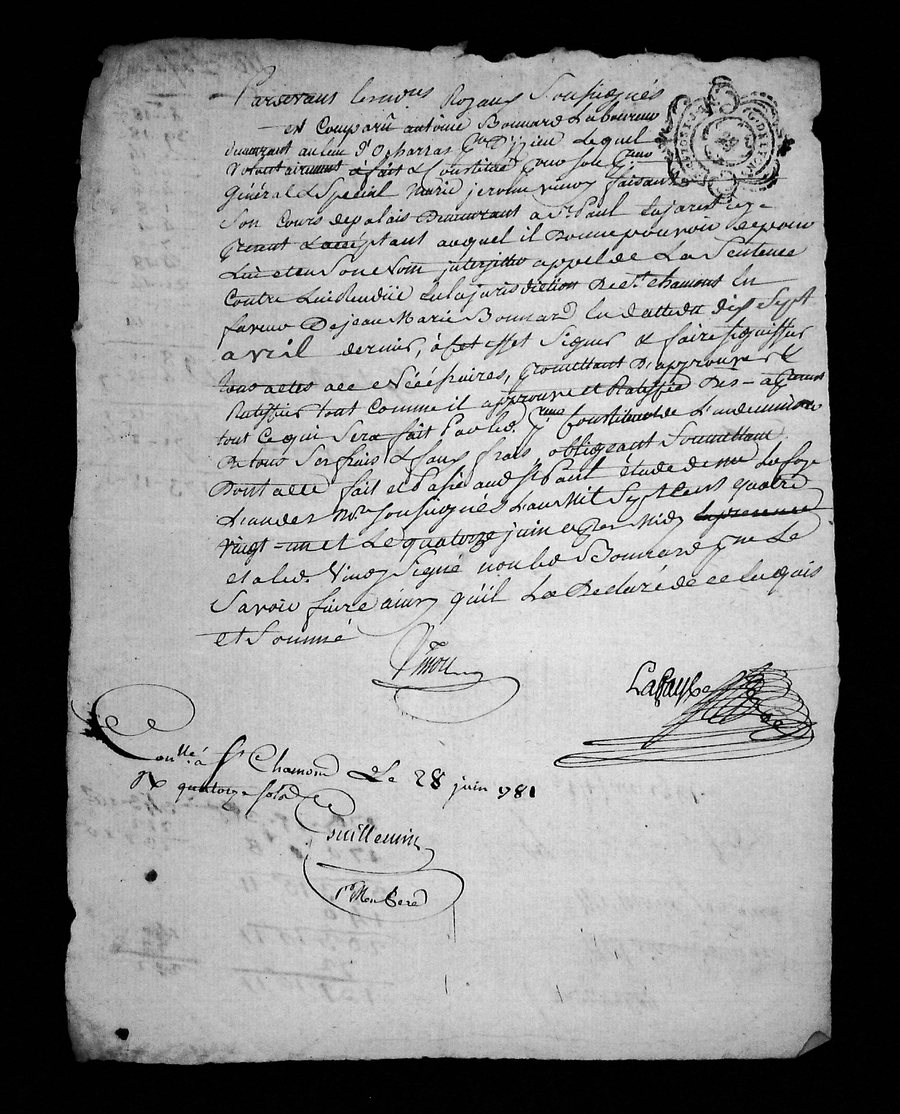 Pardevant les nores Royaux Soussignés
est Comparû antoine Bonnard Laboureur
demeurant au lieu d'Ocharras Lequel
Volontairement a fait & Constitué pour Son
Général & Special Marie jerome Vinoy faisant
Son Cours de palais Demeurant a St. Paul En jarest icy
present & acceptant auquel il Donne pouvoir de pour
Lui et en Son Nom interjetter appel de La Sentence
Contre Lui Rendüe En la jurisdiction De St. Chamont En
faveur De jean Marie Bonnard En datte du dix Sept
avril dernier, à Cet effet Signer & faire Signiffier
tous actes necessaires, promettant D'approuver &
Ratiffier tout Comme il approuve et Ratiffie Des a present
tout Ce qui Sera fait Par led. Constitué de L'indemniser
De tous Ses frais & faux frais, obligeant Soumettant
Dont acte fait et Passé aud. St. Paul étude de me Lafay
L'un des Nres Soussignés L'an Mil Sept Cent quatre
vingt = un et Le quatorze juin apres Midy
et a led. Vinoy Signé non led. Bonnard pour ne Le
Savoir faire ainsy qu'il L'a Declaré de ce Enquis
et Sommé
Vinoy
Lafay
Conlle à St Chamond Le 28 juin 1781
R quatorze sols
Guillemin